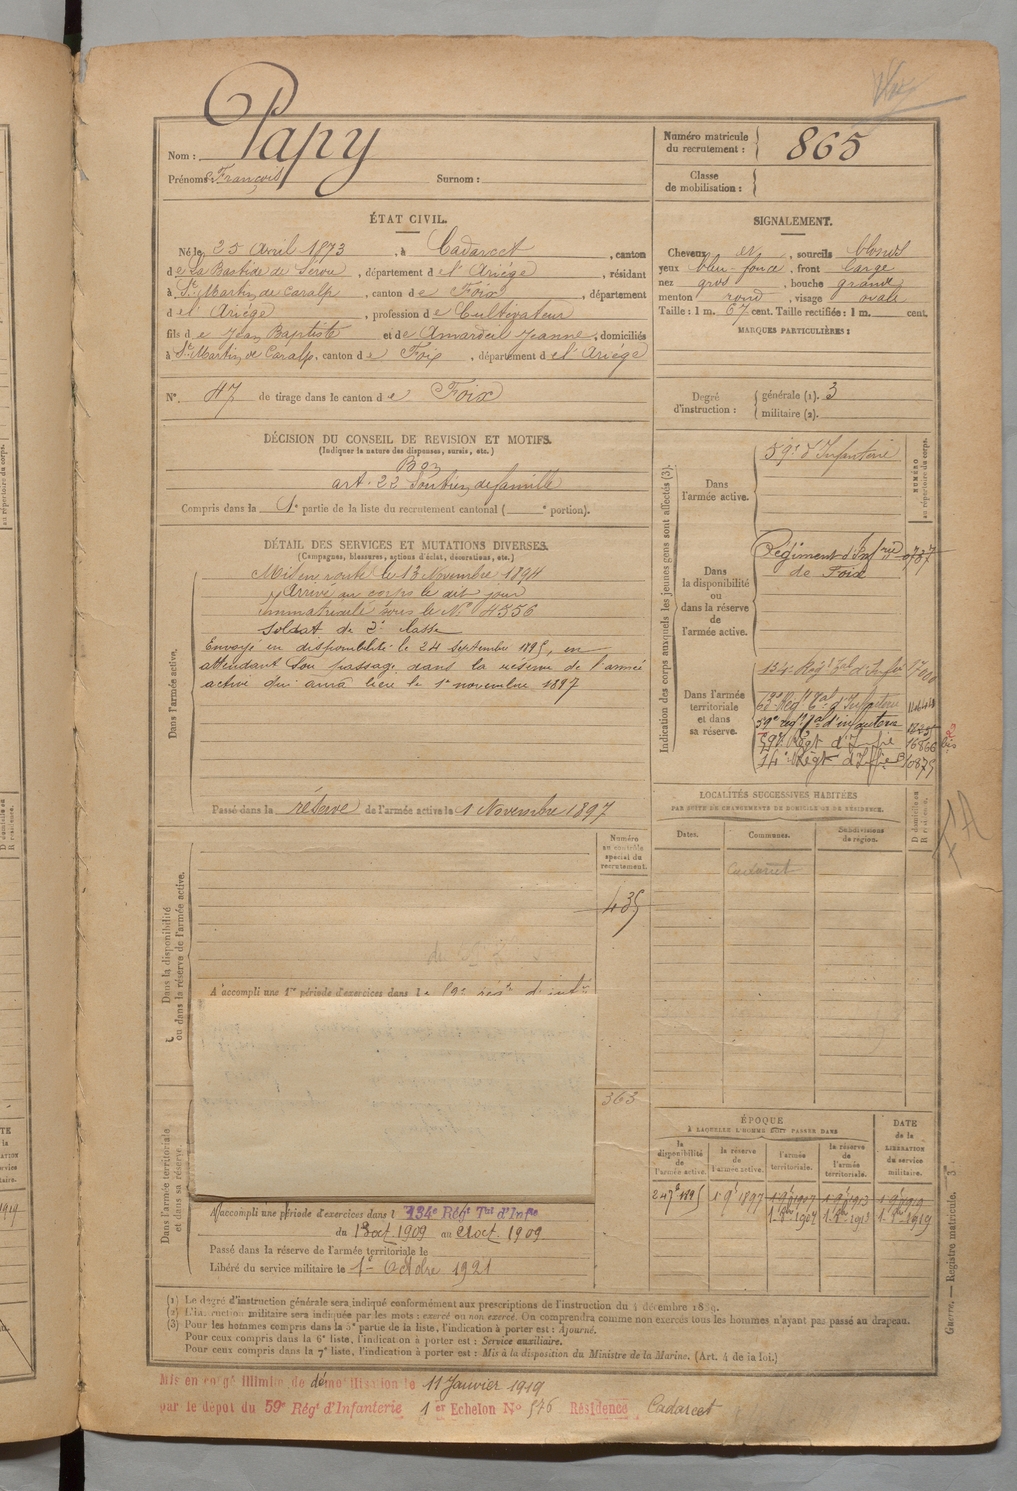 Papy
Nom :
Prénoms François Surnom :
Numéro matricule du recrutement : 865
Classe de mobilisation :
ÉTAT CIVIL.
Né le 25 Avril 1873, à Cadarcet, canton
de La Bastide de Sérou, département de l'Ariége, résidant
à St Martin de Caralp, canton de Foix, département
de l'Ariége, profession de Cultivateur
fils de Jean Baptiste et de Amardeil Jeanne, domiciliés
à St Martin de Caralp, canton de Foix, département de l'Ariége
N°. 47 de tirage dans le canton de Foix
SIGNALEMENT.
Cheveux et, sourcils blonds
yeux bleu-foncé, front large
nez gros, bouche grande
menton rond, visage ovale
Taille : 1 m. 67 cent. Taille rectifiée : 1 m. cent.
MARQUES PARTICULIÈRES :
Degré d'instruction : générale (1). 3
militaire (2).
DÉCISION DU CONSEIL DE REVISION ET MOTIFS.
(Indiquer la nature des dispenses, sursis, etc.)
Bon
art. 22 Soutien de famille
Compris dans la 1e partie de la liste du recrutement cantonal ( e portion).
DÉTAIL DES SERVICES ET MUTATIONS DIVERSES.
(Campagnes, blessures, actions d'éclat, décorations, etc.)
Dans l'armée active.
Mis en route le 13 Novembre 1894
Arrivé au corps le dit jour
immatriculé sous le N° 4556
Soldat de 2e classe
Envoyé en disponibilité le 24 septembre 1895, en
attendant son passage dans la réserve de l'armée
active qui aura lieu le 1er novembre 1897
Passé dans la réserve de l'armée active le 1 Novembre 1897
Indication des corps auxquels les jeunes gens sont affectés (3).
NUMÉRO au répertoire du corps.
Dans l'armée active.
59e d'Infanterie
Dans la disponibilité ou dans la réserve de l'armée active.
Régiment d'Infrie de Foix 0737
Dans l'armée territoriale et dans sa réserve.
134e Régt Tal d'Infie
59e régt Tal d'infanterie
59e Régt d'Infie 16866 bis
14e Régt d'Infie
LOCALITÉS SUCCESSIVES HABITÉES
PAR SUITE DE CHANGEMENTS DE DOMICILE OU DE RÉSIDENCE.
Dates. Communes. Subdivisions de région. D domicile ou R résidence.
Cadarcet
Dans la disponibilité ou dans la réserve de l'armée active.
Numéro au contrôle spécial du recrutement.
435
A accompli une 1re période d'exercices dans le
363
Dans l'armée territoriale et dans sa réserve
A accompli une période d'exercices dans l 134e Régt Tal d'Infie
du 13 oct. 1909 au 21 oct. 1909
Passé dans la réserve de l'armée territoriale le
Libéré du service militaire le 1er Octobre 1921
ÉPOQUE
À LAQUELLE L'HOMME DOIT PASSER DANS
la disponibilité de l'armée active. la réserve de l'armée active. l'armée territoriale. la réserve de l'armée territoriale.
DATE de la LIBÉRATION du service militaire.
24 7e 1895 1 9e 1897 1 9e 1907 1 9e 1913 1 9e 1919
(1) Le degré d'instruction générale sera indiqué conformément aux prescriptions de l'instruction du 4 décembre 1889.
(2) L'instruction militaire sera indiquée par les mots : exercé ou non exercé. On comprendra comme non exercés tous les hommes n'ayant pas passé au drapeau.
(3) Pour les hommes compris dans la 5e partie de la liste, l'indication à porter est : Ajourné.
Pour ceux compris dans la 6e liste, l'indication à porter est : Service auxiliaire.
Pour ceux compris dans la 7e liste, l'indication à porter est : Mis à la disposition du Ministre de la Marine. (Art. 4 de la loi.)
Guerre. — Registre matricule.
Mis en congé illimité de démobilisation le 11 Janvier 1919
par le dépôt du 59e Régt d'Infanterie 1er Echelon N° 576 Résidence Cadarcet